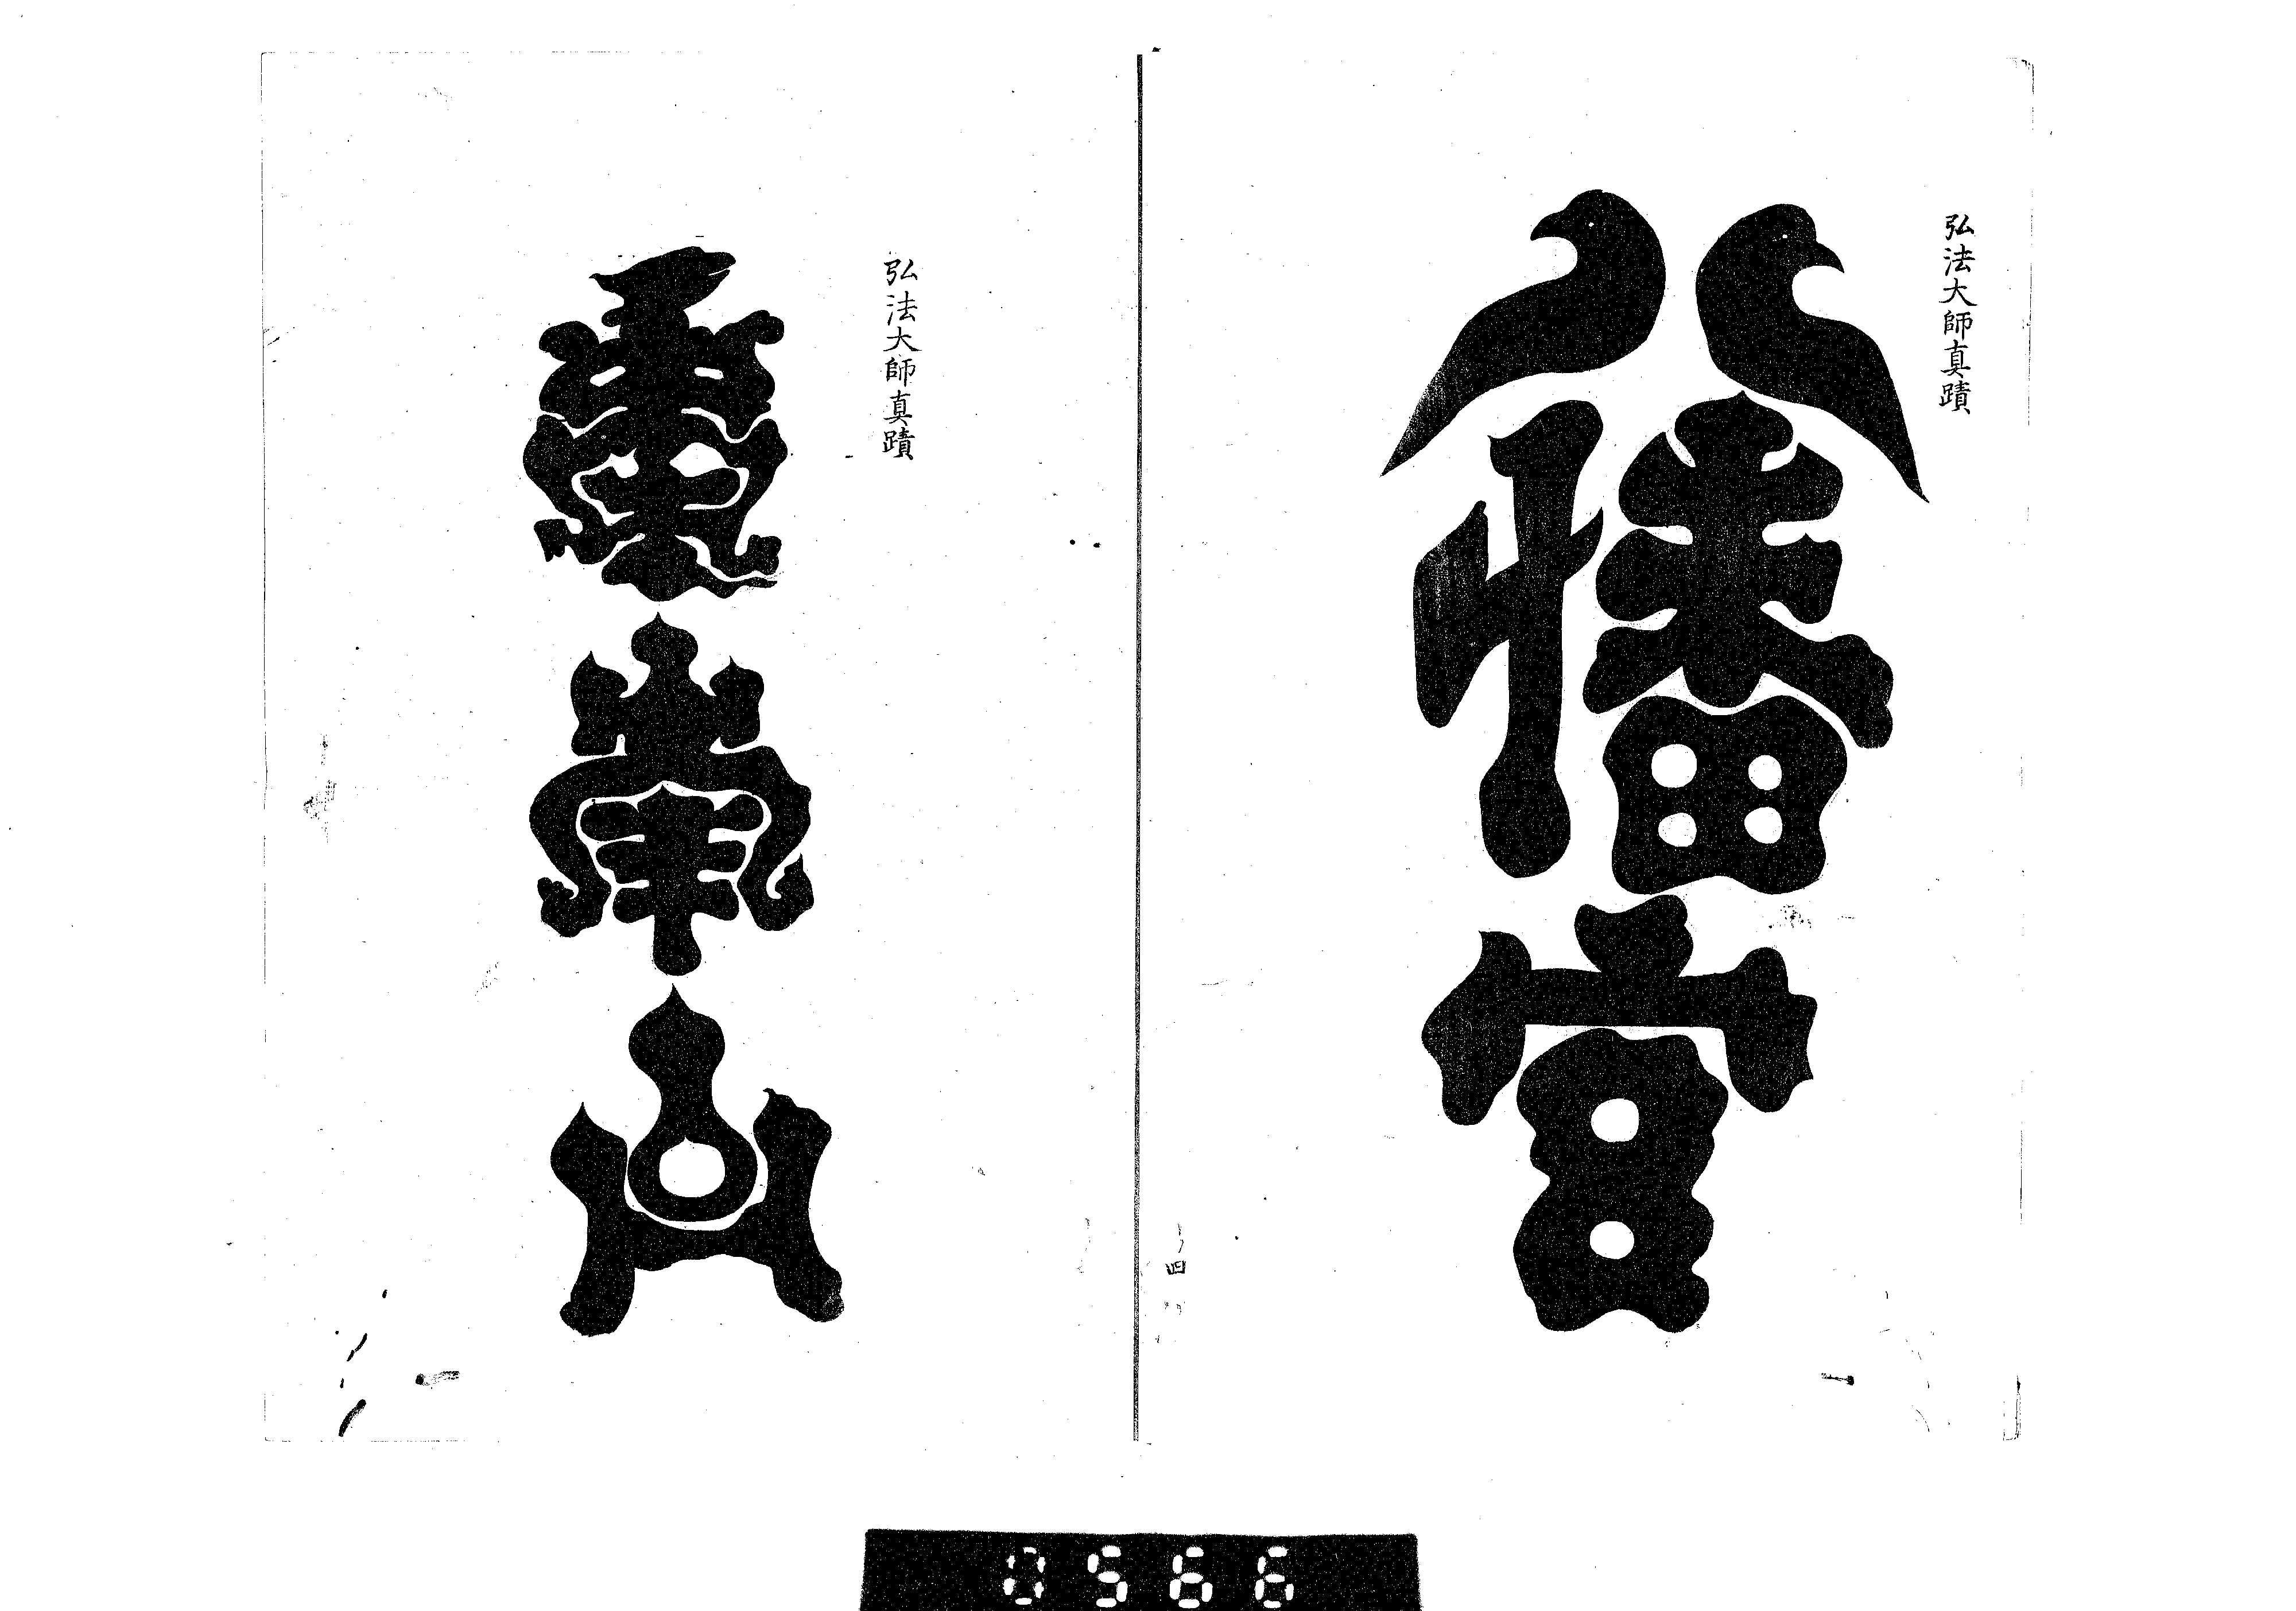 弘法大師真蹟
八幡宮
四
弘法大師真蹟
山
0566